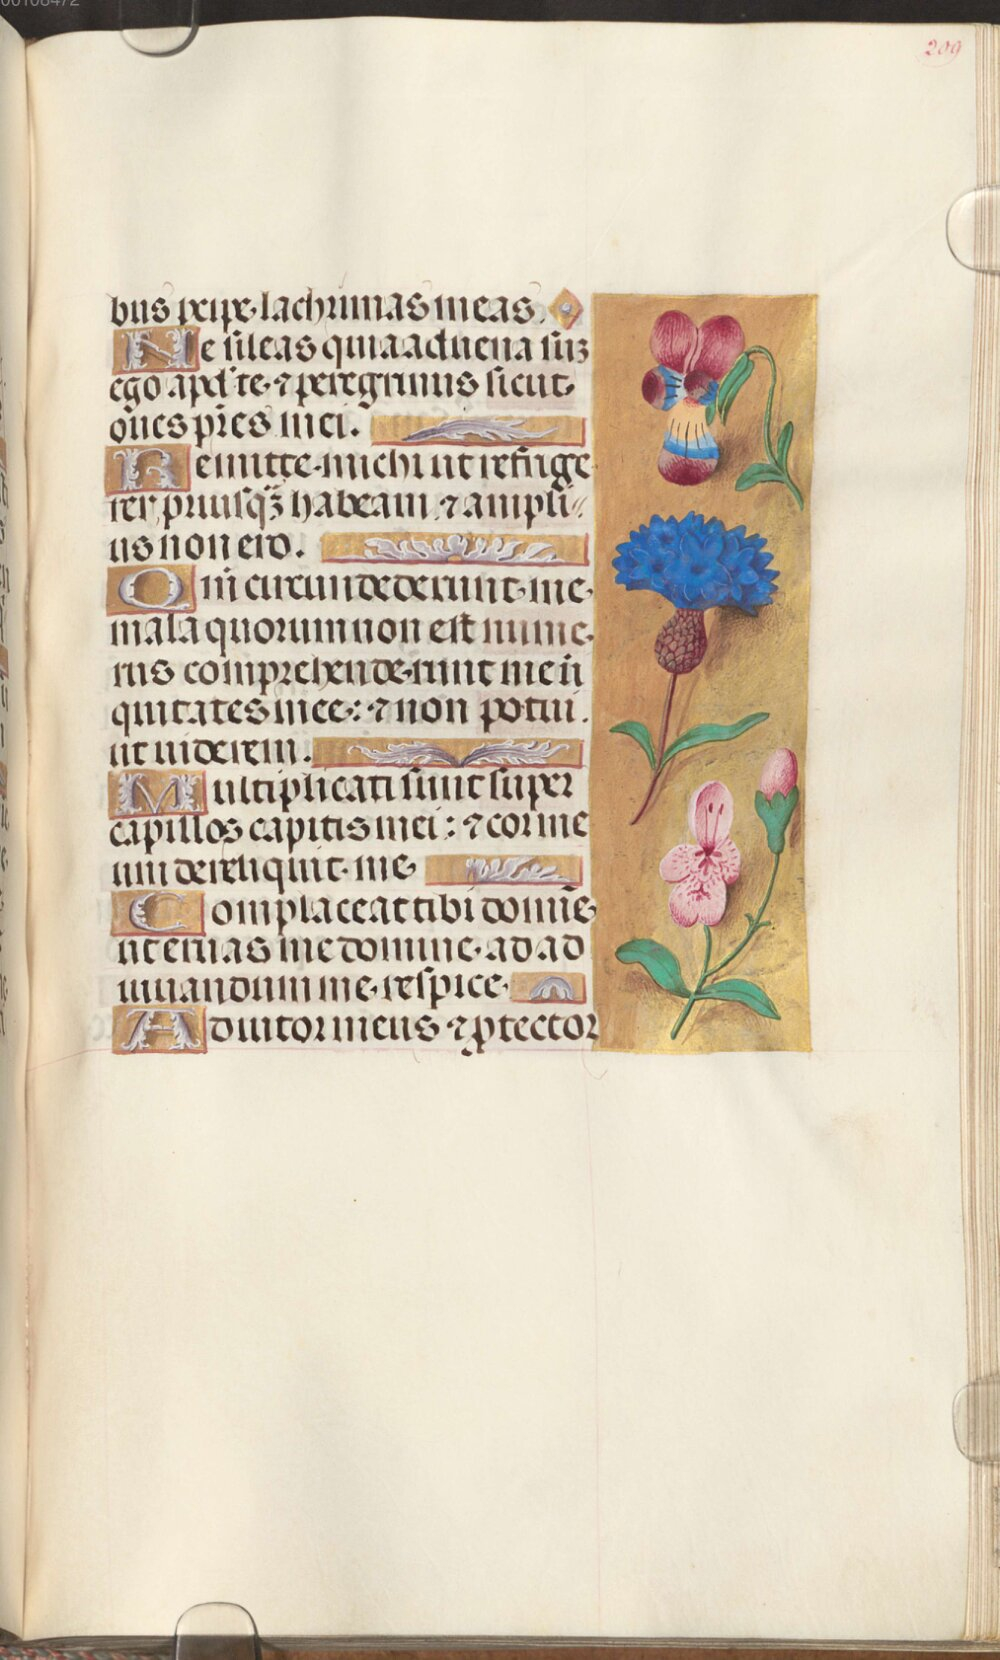 00108472
209
bus ꝑcipe lachrimas meas.
Ne sileas quia aduena suꝫ
ego apd' te ⁊ peregrinus sicut
om̄es pr̄es mei.
Remitte michi ut refrige
rer priusqꝫ̄ habeam ⁊ ampli
us non ero.
Qm̄ circundederunt me
mala quorum non est nume
rus comprehenderunt me in
quitates mee: ⁊ non potui.
ut uiderem.
Multiplicati sunt super
capillos capitis mei: ⁊ cor me
um dereliquit me
Complaceat tibi domīe
ut eruas me domine ad ad
iuuandum me respice
Adiutor meus ⁊ ꝓtector